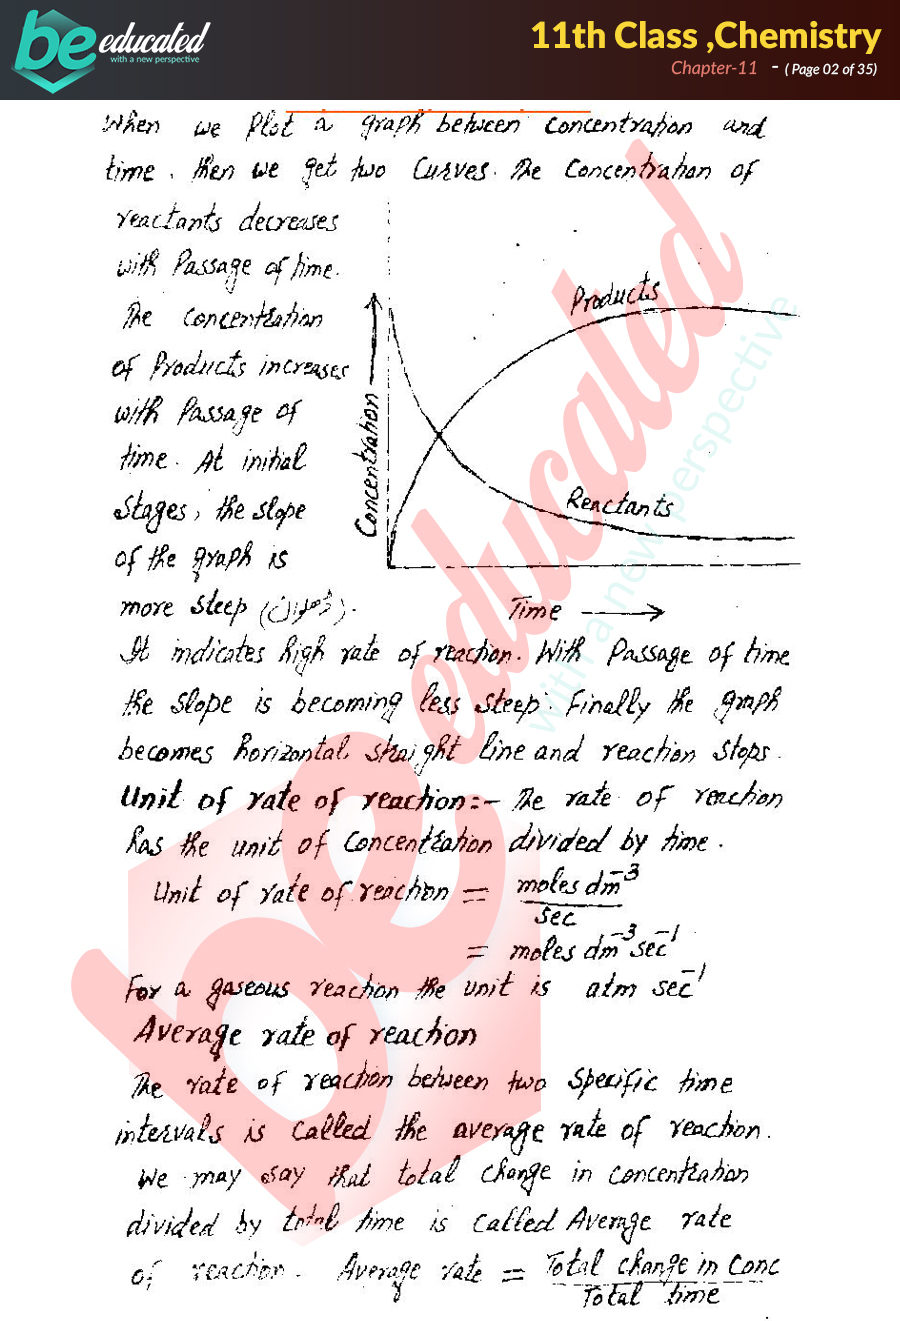 be educated
with a new perspective
11th Class ,Chemistry
Chapter-11 - ( Page 02 of 35)
When we Plot a graph between concentration and
time, then we get two Curves. The Concentration of
reactants decreases
with Passage of time.
The concentration
of Products increases
with Passage of
time. At initial
stages, the slope
of the graph is
more steep
Concentration
Products
Reactants
Time
It indicates high rate of reaction. With Passage of time
the slope is becoming less steep. Finally the graph
becomes horizontal straight line and reaction stops.
Unit of rate of reaction:- The rate of reaction
has the unit of Concentration divided by time.
Unit of rate of reaction = moles dm⁻³
sec
= moles dm⁻³ sec⁻¹
For a gaseous reaction the unit is atm sec⁻¹
Average rate of reaction
The rate of reaction between two specific time
intervals is called the average rate of reaction.
We may say that total change in concentration
divided by total time is called Average rate
of reaction. Average rate = Total change in conc
Total time
be educated
with a new perspective